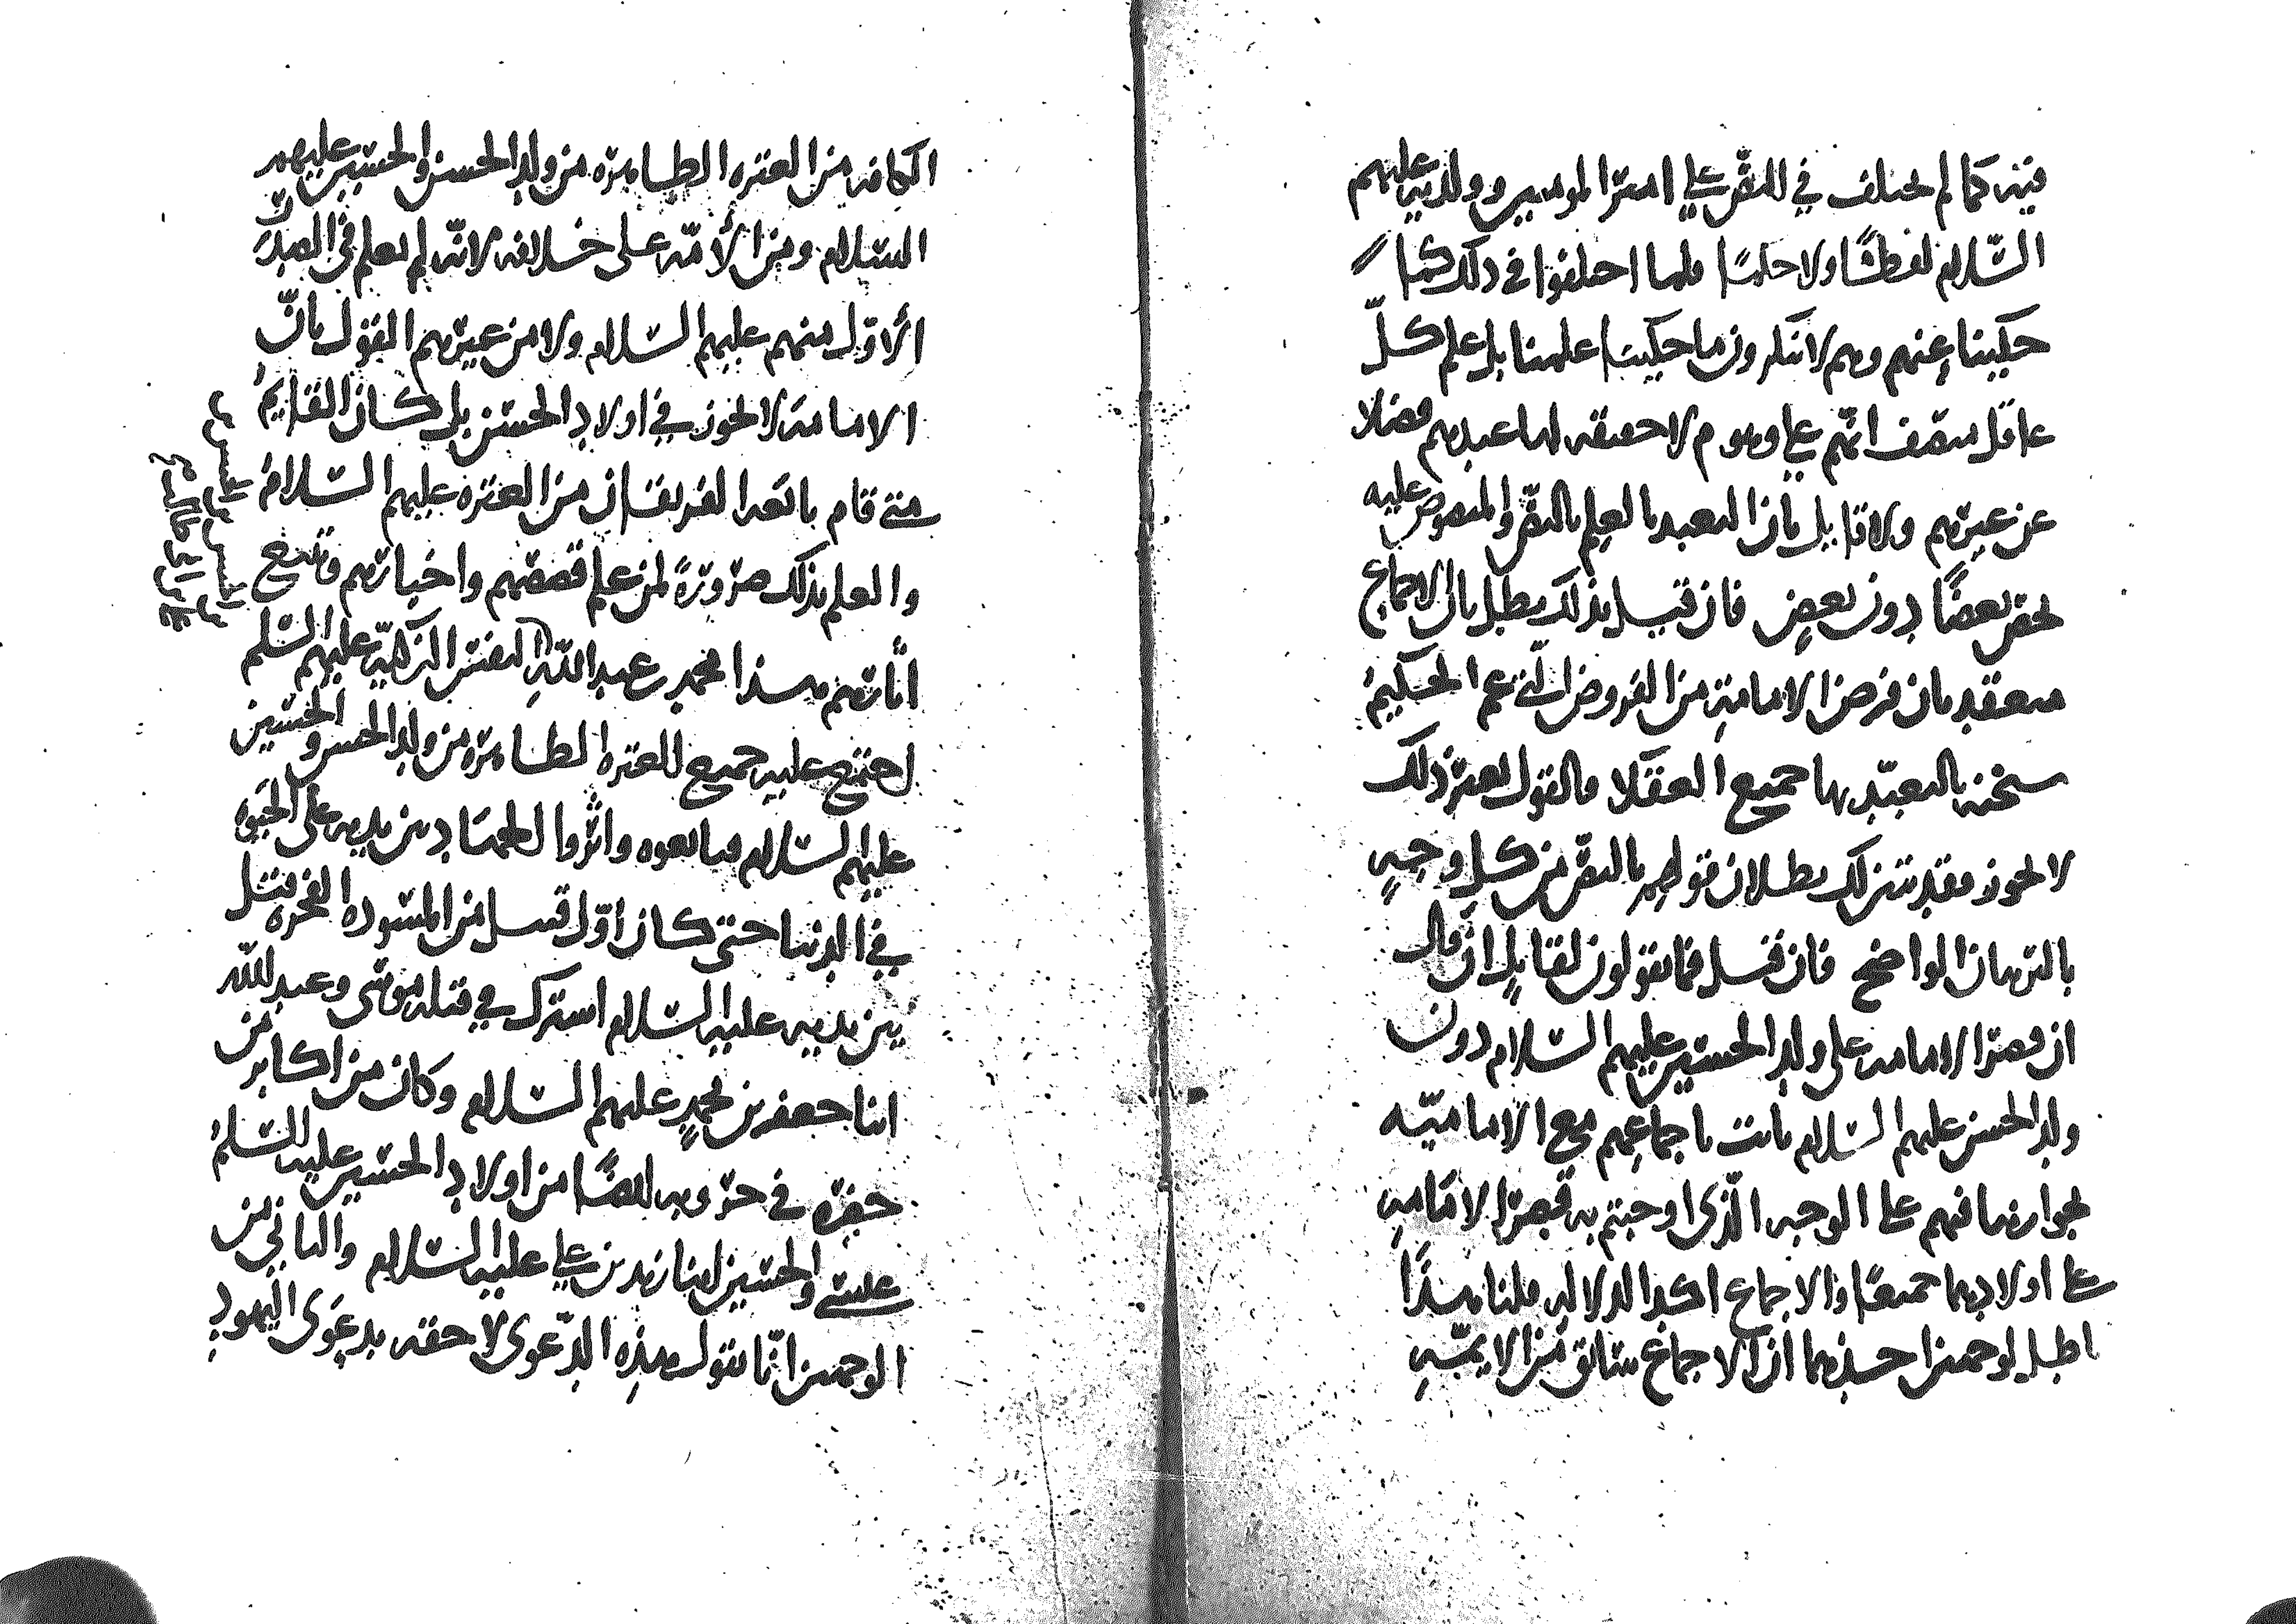 فيه كما لم يختلف في النص على امير المومنين وولديه عليهم
السلام لفظًا ولا جليًا فلما اختلفوا في ذلك كما
حكينا عنهم وهم لا ينكرون ما حكينا علمنا بل علم كلّ
عاقل منصف انهم على وهوم لا حقيقه لها عندهم فضلا
عن غيرهم ولا قايل بان التعبد بالعلم بالنص والمنصوص عليه
يخص بعضًا دون بعض فان قيل بذلك بطل بالاجماع
منعقد بان فرض الامامة من الفروض التي عم الحكيم
سبحنه بالتعبّد بها جميع العقلا والقول بغير ذلك
لا يجوز فقد تبين لك بطلان قولهم بالنص من كل وجهٍ
بالبرهان الواضح فان قيل فما تقولون لقايل ان قال
ان قصر الامامه على ولد الحسين عليهم السلام دون
ولد الحسن عليهم السلام ثابت باجماعهم مع الاماميّه
بجوازها فيهم على الوجه الّذي اوجبتم به قصر الامامه
على اولادهما جميعًا والاجماع اكد الدلاله قلنا هذا
باطل لوجهين احدهما ان الاجماع سابق من الايمّه
الكافه من العتره الطاهره من ولد الحسن والحسين عليهم
السلام ومن الأمّه على خلافه لانّه لم يعلم في الصدر
الأوّل منهم عليهم السلام ولا من غيرهم القول بانّ
الامامه لا تجوز في اولاد الحسن بل كان القايم
متى قام باتعه الفريقان من العتره عليهم السلام
والعلم بذلك ضرورةً لمن علم قصصهم واخبارهم وتتبع
اثارهم هذا محمد بن عبد الله النفس الزكيّه عليهم السلم
اجتمع عليه جميع العتره الطاهره من ولد الحسن والحسين
عليهم السلام فبايعوه واثروا الجهاد بين يديه على الحيوه
في الدنيا حتى كان اوّل قتيل من المسوده الفجره قتل
بين يديه عليه السلام اشترك في قتله موسى وعبد الله
ابنا جعفر بن محمدٍ عليهم السلام وكان من اكابر من
حضره في حروبه ايضًا من اولاد الحسين عليه السلم
عيسى والحسين ابنا زيد بن علي عليه السلام والثاني من
الوجهين انّا نقول هذه الدّعوى لاحقه بدعوى اليهود